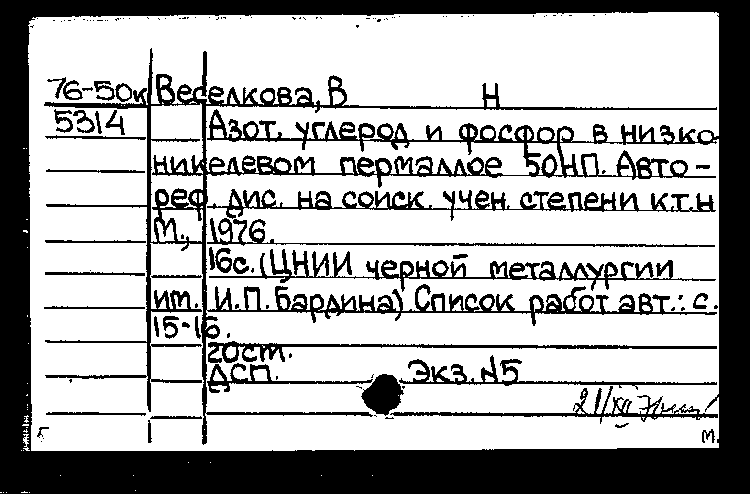 76-50к Веселкова, В Н
5314 Азот, углерод и фосфор в низко-
никелевом пермаллое 50НП. Авто-
реф. дис. на соиск. учен. степени к.т.н
М., 1976.
16с. (ЦНИИ черной металлургии
им. И.П. Бардина) Список работ авт.: с.
15-16.
20ст.
ДСП. Экз. №5
21/XII
г м.